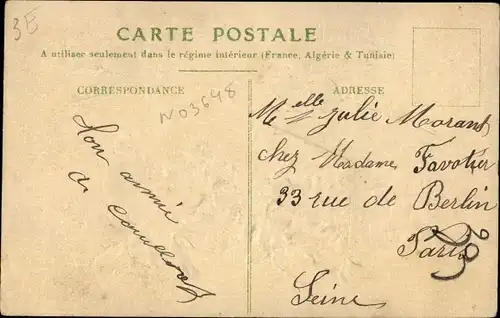 3E
CARTE POSTALE
A utiliser seulement dans le régime intérieur (France, Algérie & Tunisie)
CORRESPONDANCE
ADRESSE
NO3648
Melle Julie Morant
chez Madame Favotier
33 rue de Berlin
Paris
Seine
de